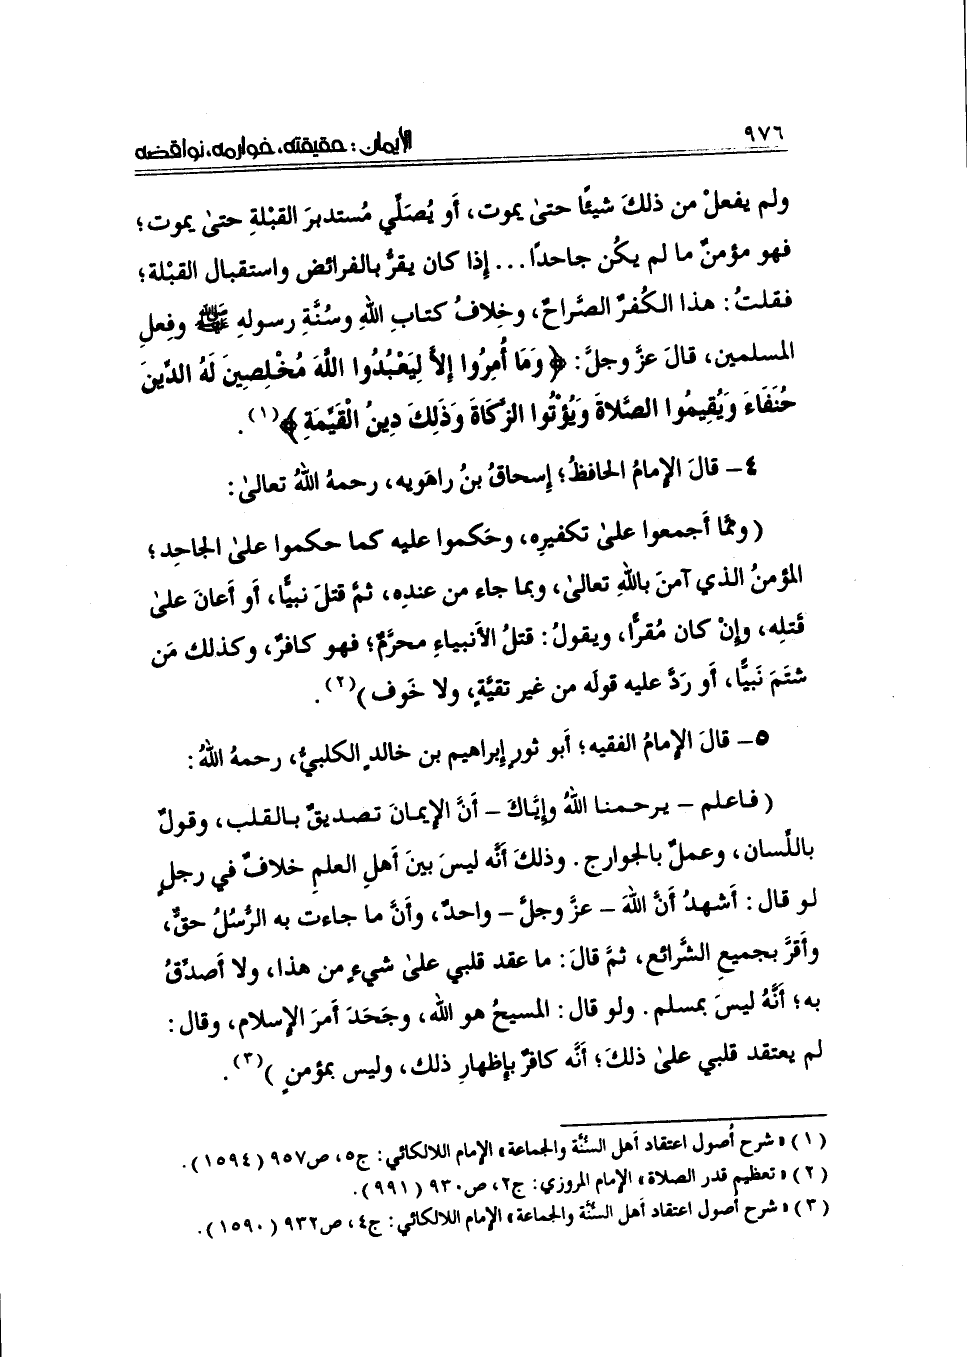 ٩٧٦
الإيمان: حقيقته، خوارمه، نواقضه
ولم يفعلْ من ذلكَ شيئًا حتىٰ يموت، أَو يُصَلِّي مُستدبرَ القبْلةِ حتىٰ يموت؛
فهو مؤمنٌ ما لم يكُن جاحدًا... إذا كان يقرُّ بالفرائض واستقبال القبْلة؛
فقلتُ: هذا الكُفرُ الصَّراحُ، وخِلافُ كتابِ اللهِ وسُنَّةِ رسولهِ ﷺ وفِعلِ
المسلمين، قالَ عزَّ وجلَّ: ﴿ وَمَا أُمِرُوا إِلاَّ لِيَعْبُدُوا اللَّهَ مُخْلِصِينَ لَهُ الدِّينَ
حُنَفَاءَ وَيُقِيمُوا الصَّلاةَ وَيُؤْتُوا الزَّكَاةَ وَذَلِكَ دِينُ الْقَيِّمَةِ ﴾(١).
٤ – قالَ الإمامُ الحافظُ؛ إسحاقُ بنُ راهَويه، رحمهُ اللهُ تعالىٰ:
( وممَّا أَجمعوا علىٰ تكفيرِه، وحَكموا عليه كما حكموا علىٰ الجاحِد؛
المؤمنُ الذي آمنَ باللهِ تعالىٰ، وبما جاء من عندِه، ثمَّ قتلَ نبيًّا، أَو أَعانَ علىٰ
قَتلِه، وإنْ كان مُقرًّا، ويقولُ: قتلُ الأَنبياءِ محرَّمٌ؛ فهو كافرٌ، وكذلك مَن
شتَمَ نَبيًّا، أَو رَدَّ عليه قولَه من غير تقيَّةٍ، ولا خَوف )(٢).
٥ – قالَ الإمامُ الفقيه؛ أَبو ثورٍ إبراهيم بن خالدٍ الكلبيُّ، رحمهُ اللهُ:
( فاعلم – يرحمنا اللهُ وإيَّاكَ – أَنَّ الإيمانَ تصديقٌ بالقلب، وقولٌ
باللِّسان، وعملٌ بالجوارح. وذلكَ أَنَّه ليسَ بينَ أَهلِ العلمِ خلافٌ في رجلٍ
لو قال: أَشهدُ أَنَّ اللهَ – عزَّ وجلَّ – واحدٌ، وأَنَّ ما جاءت به الرُّسُلُ حقٌّ،
وأَقرَّ بجميعِ الشَّرائع، ثمَّ قالَ: ما عقد قلبي علىٰ شيءٍ من هذا، ولا أصدِّقُ
به؛ أَنَّهُ ليسَ بمسلم. ولو قال: المسيحُ هو الله، وجَحَدَ أَمرَ الإسلام، وقال:
لم يعتقد قلبي علىٰ ذلكَ؛ أَنَّه كافرٌ بإظهارِ ذلك، وليس بمؤمنٍ )(٣).
(١) «شرح أُصول اعتقاد أهل السُّنَّة والجماعة» الإمام اللالكائي: ج٥، ص٩٥٧ (١٥٩٤).
(٢) «تعظيم قدر الصلاة» الإمام المروزي: ج٢، ص٩٣٠ (٩٩١).
(٣) «شرح أُصول اعتقاد أهل السُّنَّة والجماعة» الإمام اللالكائي: ج٤، ص٩٣٢ (١٥٩٠).